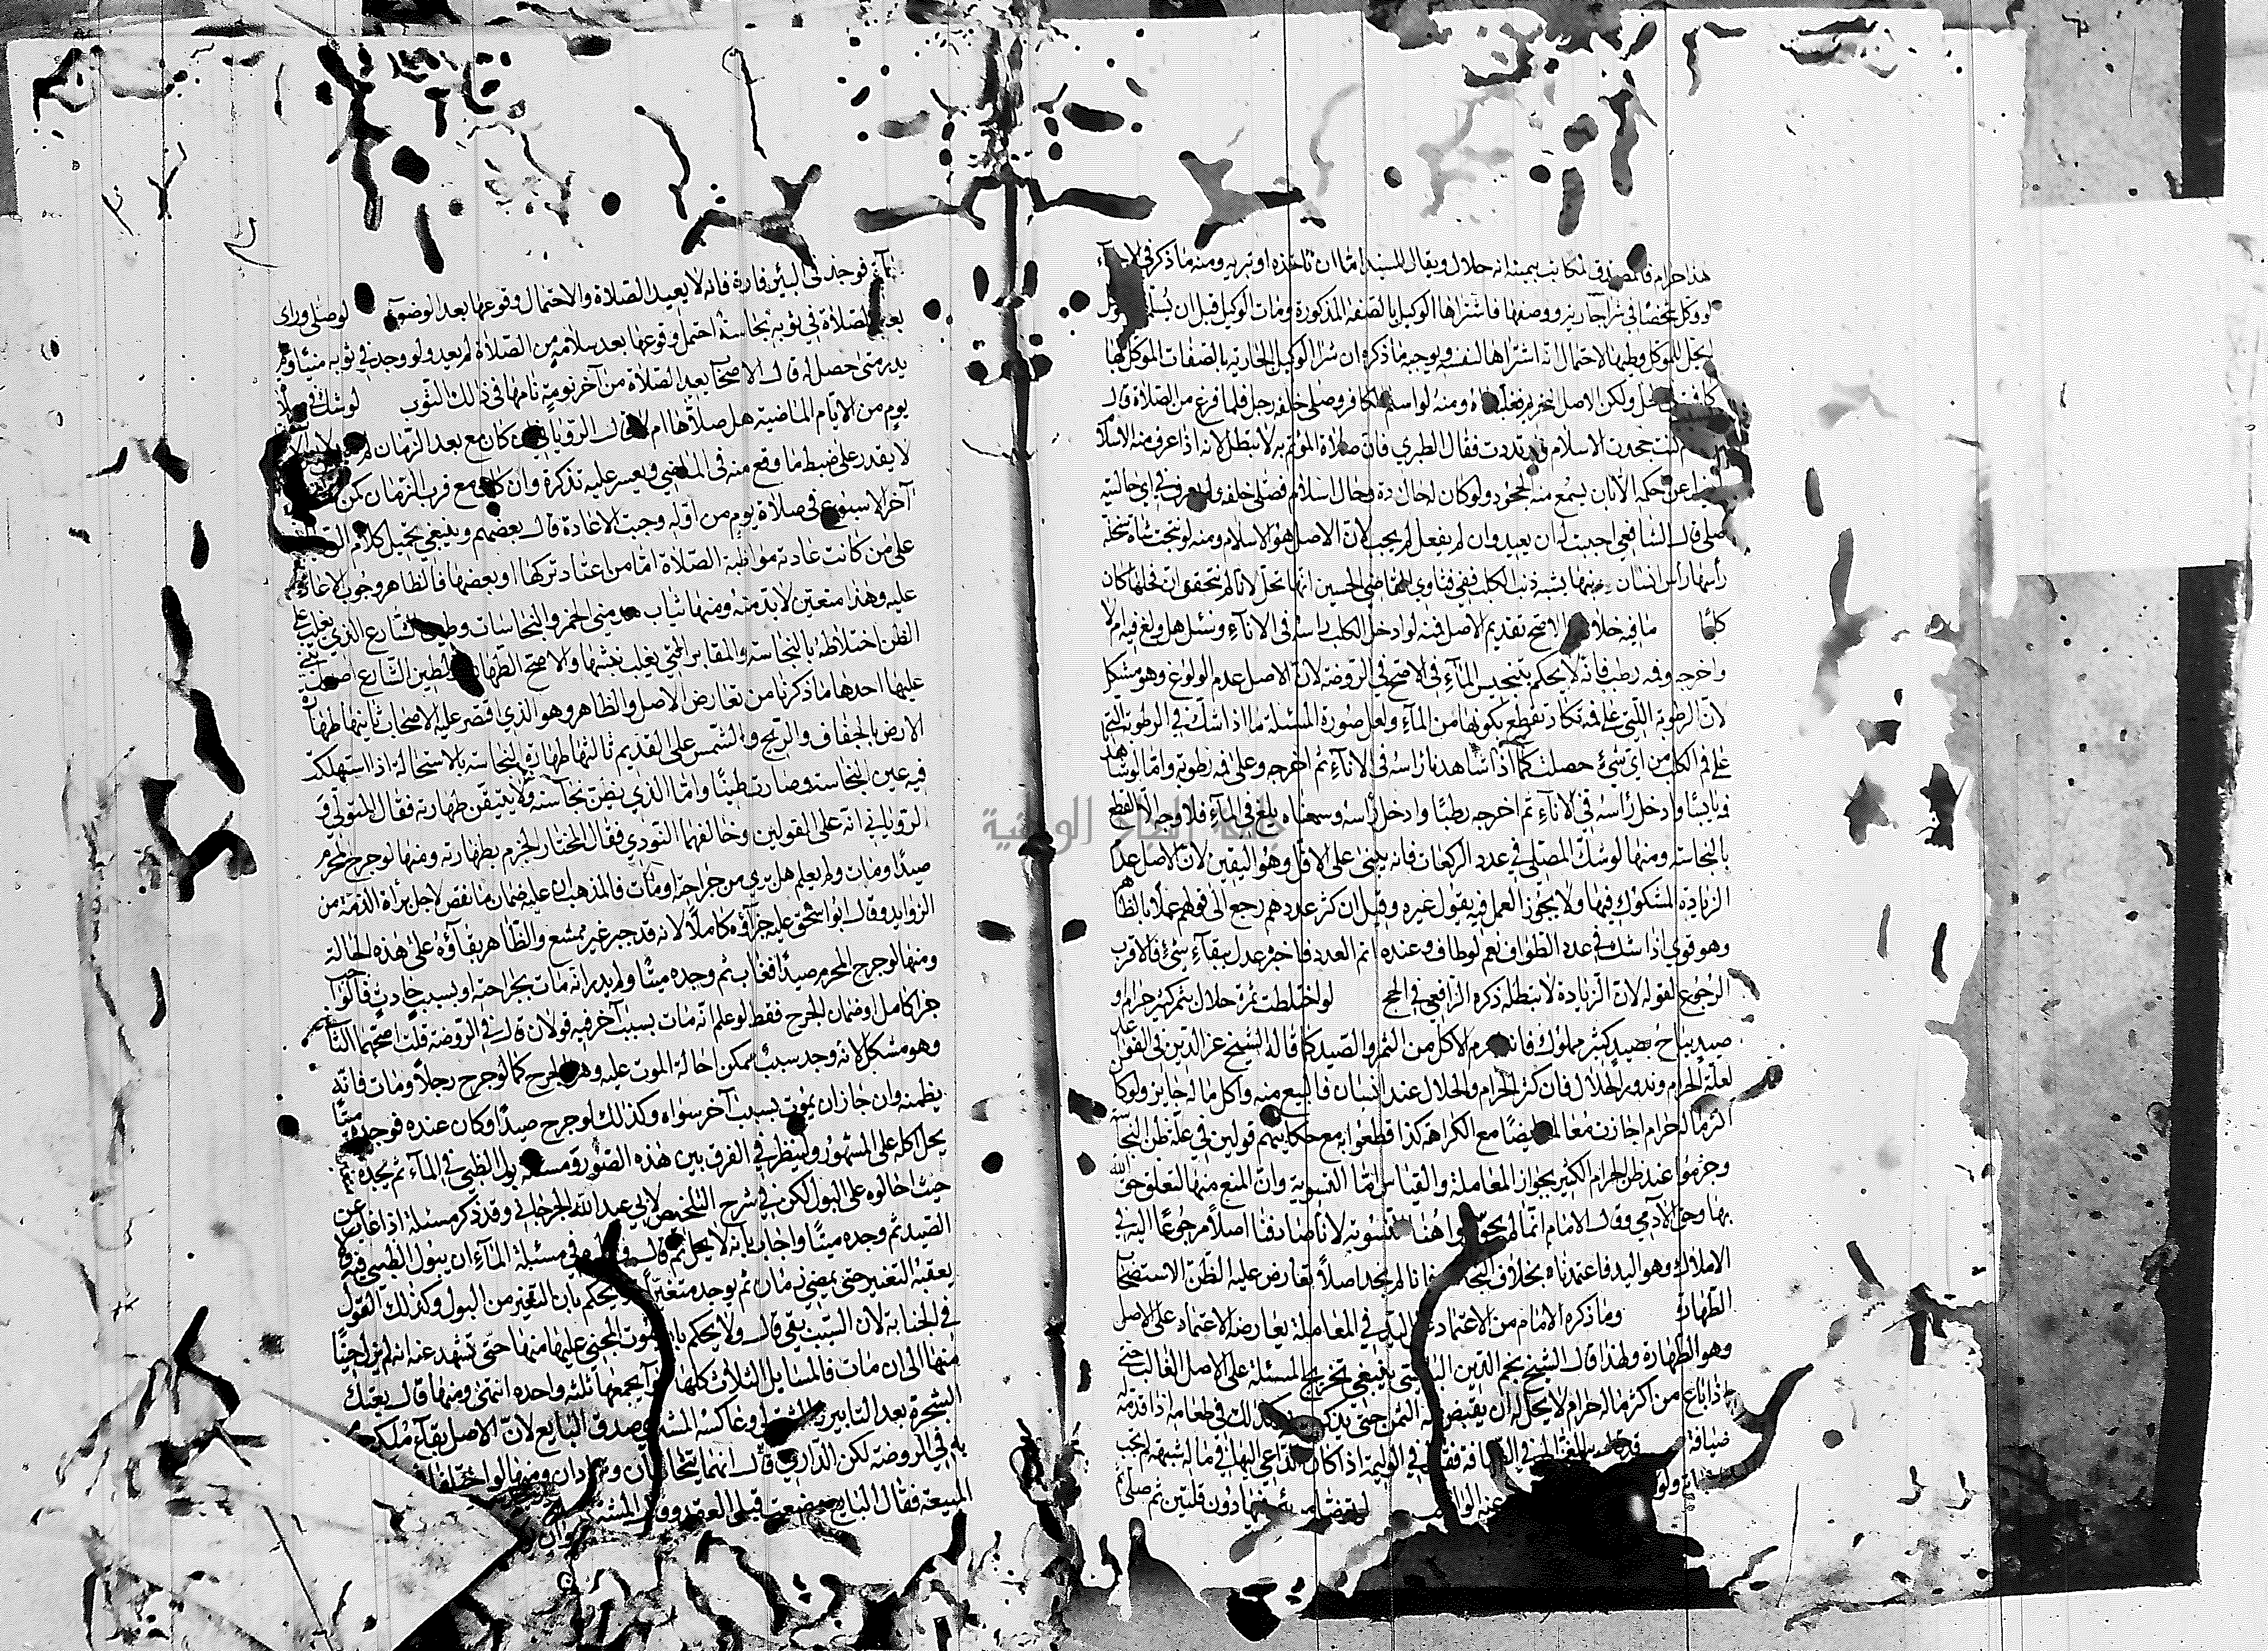 هذا حرام فالمصدق المكاتب بيمينه انه حلال ويقال للسيد اما ان تاخذه او تبريه ومنه ما ذكر في
ووكل شخصا في شرا جارية ووصفها فاشتراها الوكيل بالصفة المذكورة ومات الوكيل قبل ان يسلمها
يحل للموكل وطيها لاحتمال انه اشتراها لنفسه ويوجبه ما ذكره ان شرا الوكيل الجارية بالصفات الموكل بها
ولكن الاصل التحريم ومنه لو اسلم كافر وصلى خلفه رجل فلما فرغ من الصلاة قال
كنت جحدت الاسلام وارتددت فقال الطبري فان صلاة المؤتم به لا تبطل لانه اذا عرف منه الاسلام
عن حكمه الا بان يسمع منه الجحود ولو كان له حال ردة وحال اسلام فصلى خلفه ولم يعرف في اي حالتيه
صلى قال الشافعي احببت له ان يعيد وان لم يفعل لم يجب لان الاصل هو الاسلام ومنه لو نتجت شاة سخلة
رأسها راس انسان وذنبها يشبه ذنب الكلب ففي فتاوي القاضي الحسين انها تحل لانا لم نتحقق ان فحلها كان
كلبا ما فيه خلاف والاصح تقديم الاصل فمنه لو ادخل الكلب راسه في الاناء وشك هل ولغ فيه ام لا
واخرجه وفمه رطب فانه لا يحكم بتنجيس الماء في الاصح في الروضة لان الاصل عدم الولوغ وهو مشكل
لان الرطوبة التي على فمه تكاد تقطع بكونها من الماء ولعل صورة المسئلة ما اذا شك في الرطوبة التي
على فم الكلب من اي شيء حصلت كما اذا شاهدنا راسه في الاناء ثم اخرجه وعلى فمه رطوبة واما لو شاهد
فمه يابسا وادخل راسه في الاناء ثم اخرجه رطبا وادخل راسه وسمعناه يلغ في الماء فلا وجه الا القطع
بالنجاسة ومنها لو شك المصلي في عدد الركعات فانه يبني على الاقل وهو اليقين لان الاصل عدم
الزيادة المشكوك فيها ولا يجوز العمل فيه بقول غيره وقيل ان كثر عددهم رجع الى قولهم عملا بالظاهر
وهو قوي اذا شك في عدد الطواف نعم لو طاف وعنده اتم العدد فاخبره عدل ببقاء شيء فالاقرب
الرجوع لقوله لان الزيادة لا تبطله ذكره الرافعي في الحج لو اختلطت ثمرة حلال بثمر كثير حرام و
صيد مباح بصيد كثير مملوك فانه يحرم الاكل من الثمر والصيد كما قاله الشيخ عز الدين في القواعد
لغلبة الحرام وندور الحلال فان كثر الحرام والحلال عند انسان فالبيع منه واكل ماله جايز ولو كان
اكثر ماله حرام جازت معاملته ايضا مع الكراهة كذا قطعوا به مع حكايتهم قولين في غلبة ظن النجاسة
وجزموا عند ظن الحرام الكثير بجواز المعاملة والقياس اما التسوية وان المنع منها لتعلق حق الله
بها وحق الآدمي وقال الامام انما لم يجروا هنا التسوية لانا صادفنا اصلا مرجوعا اليه في
الاملاك وهو اليد فاعتمدناه بخلاف النجاسة فانا لم نجد اصلا يعارض عليه الظن الا استصحاب
الطهارة وما ذكره الامام من الاعتماد على اليد في المعاملة يعارضه الاعتماد على الاصل
وهو الطهارة ولهذا قال الشيخ نجم الدين البالسي ينبغي تخريج المسئلة على الاصل الغالب حتى
اذا باع من اكثر ماله حرام لا يحل له ان يقبض منه الثمن حتى يذكر وكذلك في طعامه اذا قدمه
ضيافة في الضيافة فقال في الوليمة اذا كان الداعي اليها في ماله شبهة لم تجب
ولو عنه الواجب لو توضا من بئر فيها دون قلتين ثم صلى
ثم فوجد في البئر فارة فانه لا يعيد الصلاة والاحتمال وقوعها بعد الوضوء لو صلى وراى
بعد الصلاة في ثوبه نجاسة احتمل وقوعها بعد سلامه من الصلاة لم يعد ولو وجد في ثوبه منيا ولم
يدر متى حصل له قال الاصحاب يعيد الصلاة من آخر نومة نامها في ذلك الثوب لو شك في صلاة
يوم من الايام الماضية هل صلاها ام لا قال الروياني ان كان مع بعد الزمان لم
لا يقدر على ضبط ما وقع منه في الماضي ويعسر عليه تذكره وان كان مع قرب الزمان كمن
آخر الاسبوع في صلاة يوم من اوله وجبت الاعادة قال بعضهم وينبغي تحميل كلام
على من كانت عادته مواظبة الصلاة اما من اعتاد تركها او بعضها فالظاهر وجوب الاعادة
عليه وهذا متعين لا بد منه ومنها ثياب مدمني الخمر والنجاسات وطين الشارع الذي يغلب على
الظن اختلاطه بالنجاسة والمقابر التي يغلب نبشها والاصح الطهارة ولطين الشارع اصول يبنى
عليها احدها ما ذكرنا من تعارض الاصل والظاهر وهو الذي اقتصر عليه الاصحاب ثانيها طهارة
الارض بالجفاف والريح والشمس على القديم ثالثها طهارة النجاسة بالاستحالة اذا استهلكت
فيه عين النجاسة وصارت طينا واما الذي يظن نجاسته ولا يتيقن طهارته فقال المتولي و
الروياني انه على القولين وخالفهما النووي فقال المختار الجزم بطهارته ومنها لو جرح المحرم
صيدا ومات ولم يعلم هل بري من جراحته او مات فالمذهب ان عليه ضمان ما نقص لاجل براة الذمة من
الزوايد وقال ابو اسحق عليه جزاؤه كاملا لانه قد جبر غير ممتنع والظاهر بقاؤه على هذه الحالة
ومنها لو جرح المحرم صيدا فغاب ثم وجده ميتا ولم يدر انه مات بجراحته او بسبب حادث فالواجب
جزا كامل او ضمان الجرح فقط لو علم انه مات بسبب آخر فيه قولان قال في الروضة قلت اصحهما الثاني
وهو مشكل لانه وجد سبب يمكن احالة الموت عليه وهو الجرح كما لو جرح رجلا ومات فانه
يضمنه وان جاز ان يموت بسبب آخر سواه وكذلك لو جرح صيدا وكان عنده فوجده ميتا
يحل اكله على المشهور ولينظر في الفرق بين هذه الصورة ومسئلة بول الظبي في الماء ثم يجده متغيرا
حيث احالوه على البول لكن في شرح التلخيص لابي عبد الله الجرجاني وقد ذكر مسئلة اذا غاب عن
الصيد ثم وجده ميتا واجاب بانه لا يحل ثم قال في مسئلة الماء ان يبول الظبي فيه
يعقبه التغير حتى يمضي زمان ثم يوجد متغيرا لا يحكم بان التغير من البول وكذلك القول
في الجناية لان السبب بقي قال ولا يحكم بان موت المجني عليها منها حتى تشهد عنه انه لم يزل
منها الى ان مات فالمسايل الثلاث كلها يجمعها ثلثه واحده انتهى ومنها قال بعتك
الشجرة بعد التابير وعاكسه المشتري صدق البايع لان الاصل بقاء ملكه
به في الروضة لكن الدارمي قال انهما يتحالفان ويترادان ومنها لو اختلفا
المبيعة فقال البايع وضعت قبل العقد وقال المشتري